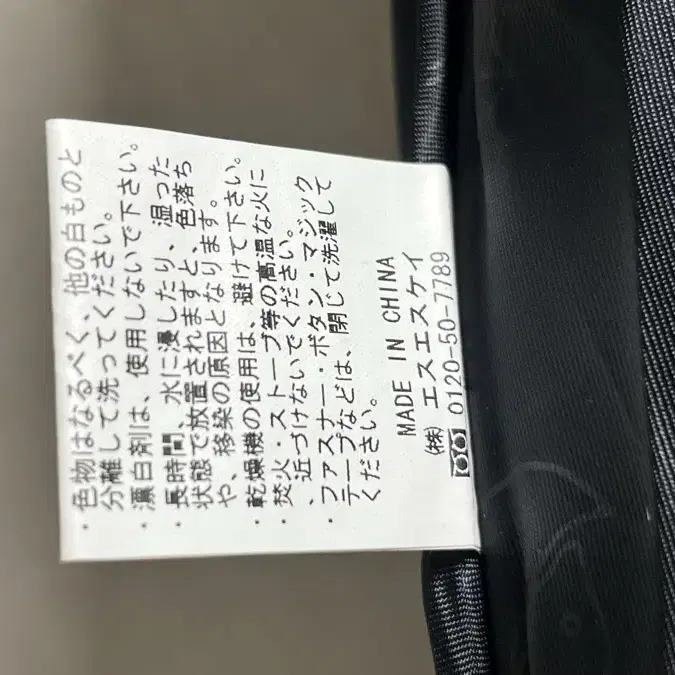 ・色物はなるべく、他の白ものと
分離して洗ってください。
・漂白剤は、使用しないで下さい。
・長時間、水に浸したり、湿った
状態で放置されますと、色落ち
や、移染の原因となります。
・乾燥機の使用は、避けて下さい。
・焚火・ストーブ等の高温な火に
、近づけないでください。
・ファスナー・ボタン・マジック
テープなどは、閉じて洗濯して
ください。
MADE IN CHINA
㈱ エスエスケイ
0120-50-7789